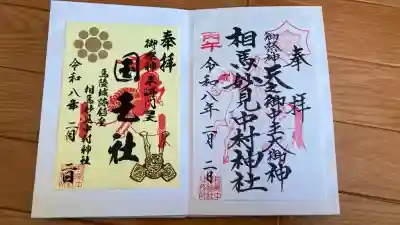 奉拝
御祭神
天之御中主大御神
相馬妙見中村神社
丙午
令和八年二月二日
奉拝
国王社
馬陵城跡鎮座
相馬妙見中村神社
令和八年二月二日